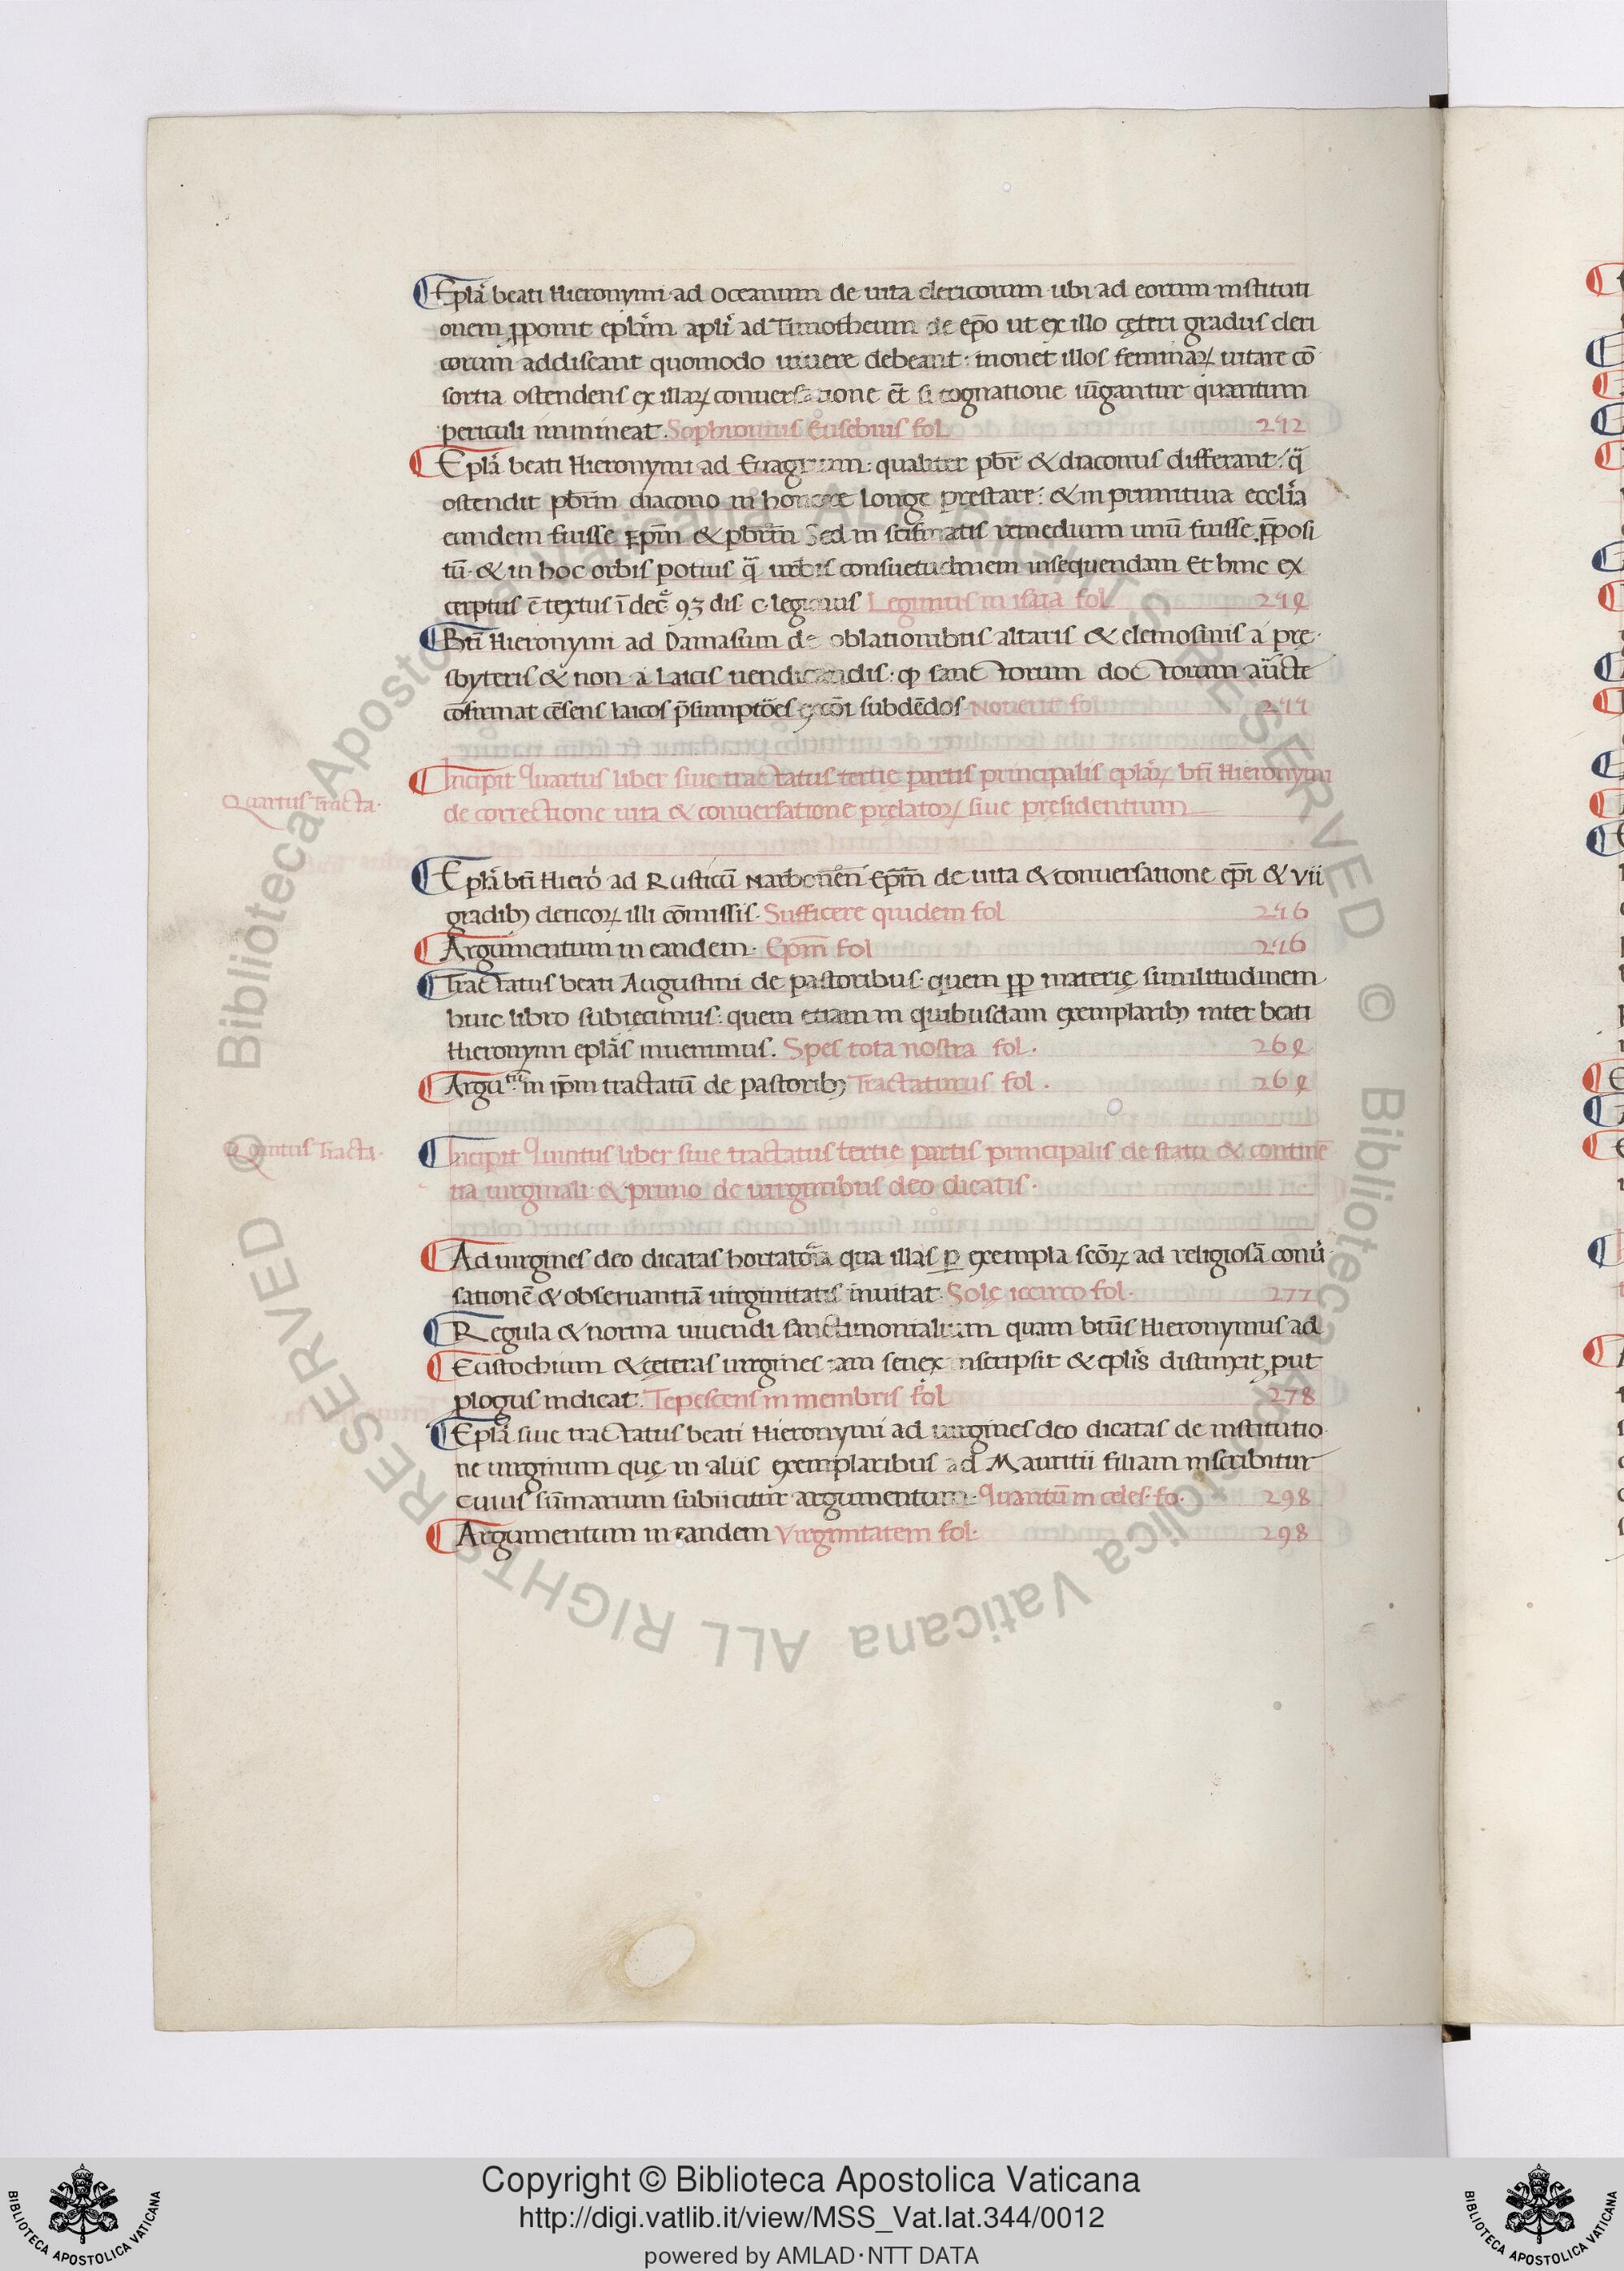 Epl̄a beati Hieronymi ad Oceanum de uita clericorum ubi ad eorum instituti
onem p̱ponit epl̄am apl̄i ad Timotheum de ep̄o ut ex illo cęteri gradus cleri
corum addiscant quomodo uiuere debeant: monet illos feminaꝝ uitare cō
sortia ostendens ex illaꝝ conuersatione et̄ si cognatione iūgantur quantum
periculi immineat. Sophronius Eusebius fol 242
Epl̄a beati Hieronymi ad Euagrium: qualiter pbr̄ & diaconus differant: q̄
ostendit pbr̄m diacono in honore longe prestare: & in primitiua eccl̄ia
eundem fuisse Ep̄m & pbr̄m Sed in scismatis remedium unū fuisse p̄posi
tū & in hoc orbis potius q̄ urbis consuetudinem insequendam Et hinc ex
cerptus ē textus ī dec̄ 93 dis c. legimus Legimus in isaia fol 244
Btī Hieronymi ad Damasum de oblationibus altaris & elemosinis a prę
sbyteris & non a laicis uendicandis: ꝙ sanctorum doctorum aūcte
cōfirmat cēsens laicos p̄sumptōes excōi subdēdos Nouerit fol 244
Incipit Quartus liber siue tractatus tertię partis principalis epl̄aꝝ btī Hieronymi
Quartus Tracta.
de correctione uita & conuersatione prelatoꝝ siue presidentium
Epl̄a btī Hiero ad Rusticū Narbonēn Ep̄m de uita & conuersatione ep̄i & vii
gradibꝫ clericoꝝ illi cōmissis. Sufficere quidem fol 246
Argumentum in eandem. Ep̄m fol 246
Tractatus beati Augustini de pastoribus quem ꝓp materię similitudinem
huic libro subiecimus: quem etiam in quibusdam exemplaribꝫ inter beati
Hieronymi epl̄as inuenimus. Spes tota nostra fol. 264
Argutm̄ in ip̄m tractatū de pastoribꝫ Tractaturus fol. 264
Quintus Tracta.
Incipit Quintus liber siue tractatus tertię partis principalis de statu & continē
tia uirginali & primo de uirginibus deo dicatis.
Ad uirgines deo dicatas hortatoria qua illas ꝑ exempla scōꝝ ad religiosā conū
sationē & obseruantiā uirginitatis inuitat. Solę iccirco fol. 277
Regula & norma uiuendi sanctimonialium quam btūs Hieronymus ad
Eustochium & ceteras uirgines iam senex inscripsit & epl̄is distinxit put
ꝓlogus indicat. Tepescens in membris fol 278
Epl̄a siue tractatus beati Hieronymi ad uirgines deo dicatas de institutio
ne uirginum quę in aliis exemplaribus ad Mauritii filiam inscribitur
cuius sūmarium subiicitur argumentum. Quantū in celes. fo. 298
Argumentum in eandem Virginitatem fol. 298
Copyright © Biblioteca Apostolica Vaticana
http://digi.vatlib.it/view/MSS_Vat.lat.344/0012
powered by AMLAD·NTT DATA
© Biblioteca Apostolica Vaticana ALL RIGHTS RESERVED
© Biblioteca Apostolica Vaticana ALL RIGHTS RESERVED
BIBLIOTECA APOSTOLICA VATICANA
BIBLIOTECA APOSTOLICA VATICANA